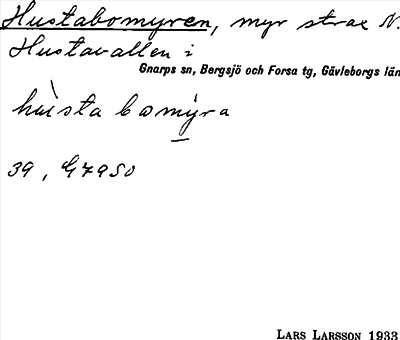 Hustabomyren, myr strax N.
Hustavallen i
Gnarps sn, Bergsjö och Forsa tg, Gävleborgs län
hùsta bomýra
39, G7950
LARS LARSSON 1933